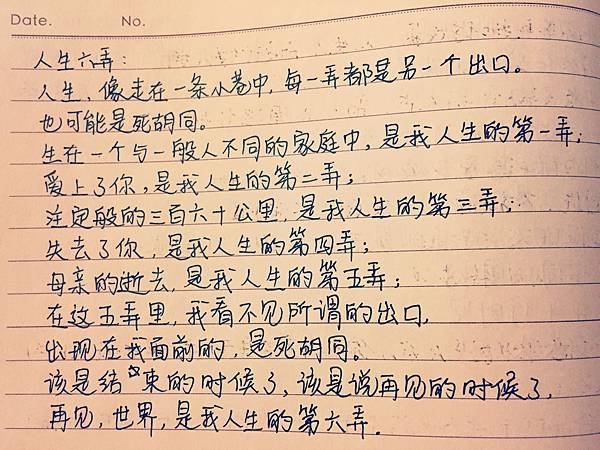 Date. No.
人生六弄：
人生，像走在一条小巷中，每一弄都是另一个出口。
也可能是死胡同。
生在一个与一般人不同的家庭中，是我人生的第一弄；
爱上了你，是我人生的第二弄；
注定般的三百六十公里，是我人生的第三弄；
失去了你，是我人生的第四弄；
母亲的逝去，是我人生的第五弄；
在这五弄里，我看不见所谓的出口，
出现在我面前的，是死胡同。
该是结束的时候了，该是说再见的时候了，
再见，世界，是我人生的第六弄．